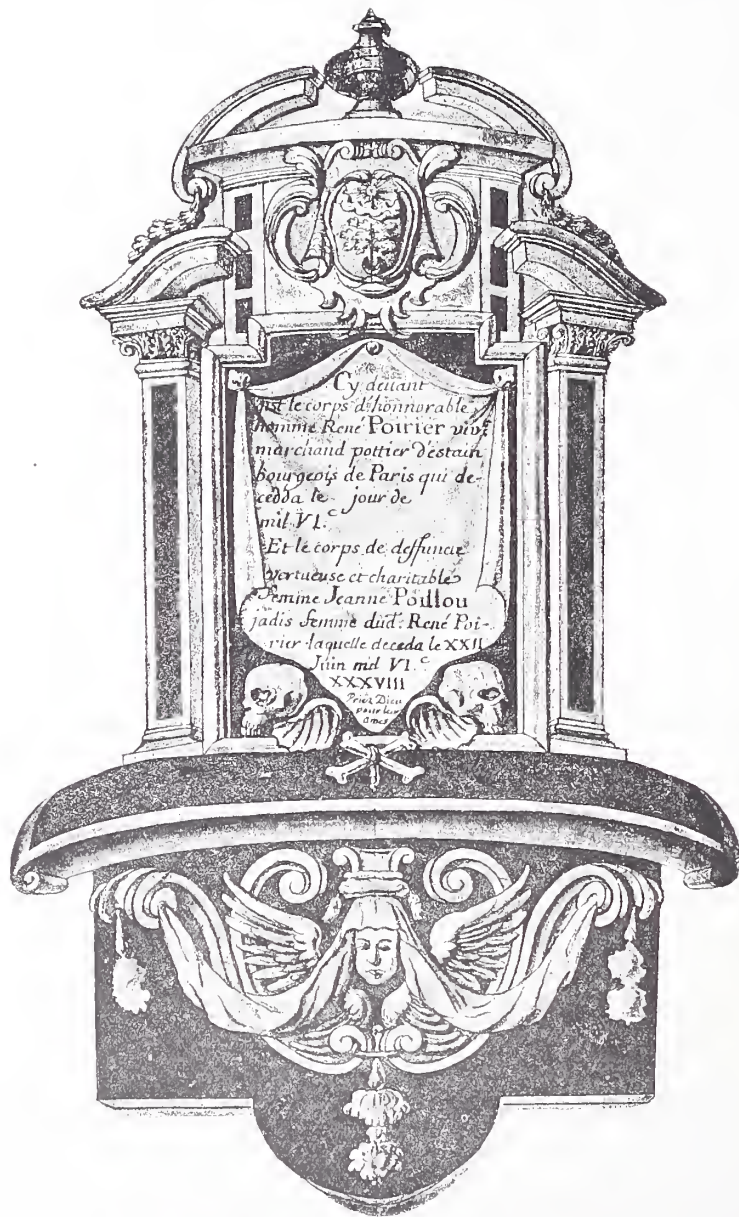 Cy deuant
gist le corps d'honnorable
homme René Poirier viv.t
marchand pottier d'estain
bourgeois de Paris qui de-
cedda le jour de
mil VI.c
Et le corps de deffuncte
vertueuse et charitable
femme Jeanne Poillou
jadis femme dud.t René Poi-
rier laquelle deceda le XXII
Juin mil VI.c
XXXVIII
Priéz Dieu
pour leurs
ames